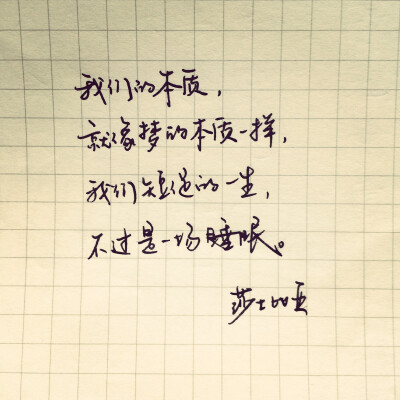 我们的本质，
就像梦的本质一样，
我们短促的一生，
不过是一场睡眠。
莎士比亚